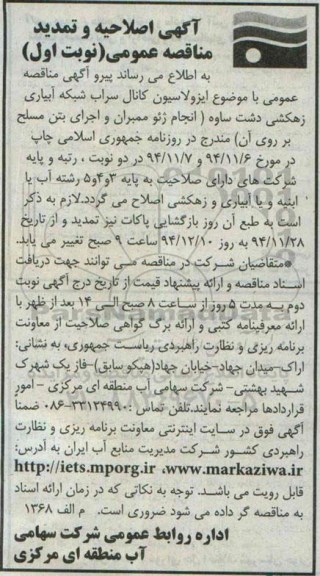 آگهی اصلاحیه و تمدید
مناقصه عمومی(نوبت اول)
به اطلاع می رساند پیرو آگهی مناقصه
عمومی با موضوع ایزولاسیون کانال سراب شبکه آبیاری
زهکشی دشت ساوه ( انجام ژئو ممبران و اجرای بتن مسلح
بر روی آن) مندرج در روزنامه جمهوری اسلامی چاپ
در مورخ ۹۴/۱۱/۶ و ۹۴/۱۱/۷ در دو نوبت ، رتبه و پایه
شرکت های دارای صلاحیت به پایه ۳و۴و۵ رشته آب یا
ابنیه و یا آبیاری و زهکشی اصلاح می گردد.لازم به ذکر
است به طبع آن روز بازگشایی پاکات نیز تمدید و از تاریخ
۹۴/۱۱/۲۸ به روز ۹۴/۱۲/۱۰ ساعت ۹ صبح تغییر می یابد.
*متقاضیان شرکت در مناقصه می توانند جهت دریافت
اسناد مناقصه و ارائه پیشنهاد قیمت از تاریخ درج آگهی نوبت
دوم به مدت ۵ روز از ساعت ۸ صبح الی ۱۴ بعد از ظهر با
ارائه معرفینامه کتبی و ارائه برگ گواهی صلاحیت از معاونت
برنامه ریزی و نظارت راهبردی ریاست جمهوری، به نشانی:
اراک-میدان جهاد-خیابان جهاد(هپکو سابق)- فاز یک شهرک
شهید بهشتی- شرکت سهامی آب منطقه ای مرکزی - امور
قراردادها مراجعه نمایند.تلفن تماس :۳۳۱۳۴۹۹۰-۰۸۶ ضمنا
آگهی فوق در سایت اینترنتی معاونت برنامه ریزی و نظارت
راهبردی کشور شرکت مدیریت منابع آب ایران به آدرس:
http://iets.mporg.ir ،www.markaziwa.ir
قابل رویت می باشد. توجه به نکاتی که در زمان ارائه اسناد
به مناقصه گر داده می شود ضروری است. م الف ۱۳۶۸
اداره روابط عمومی شرکت سهامی
آب منطقه ای مرکزی